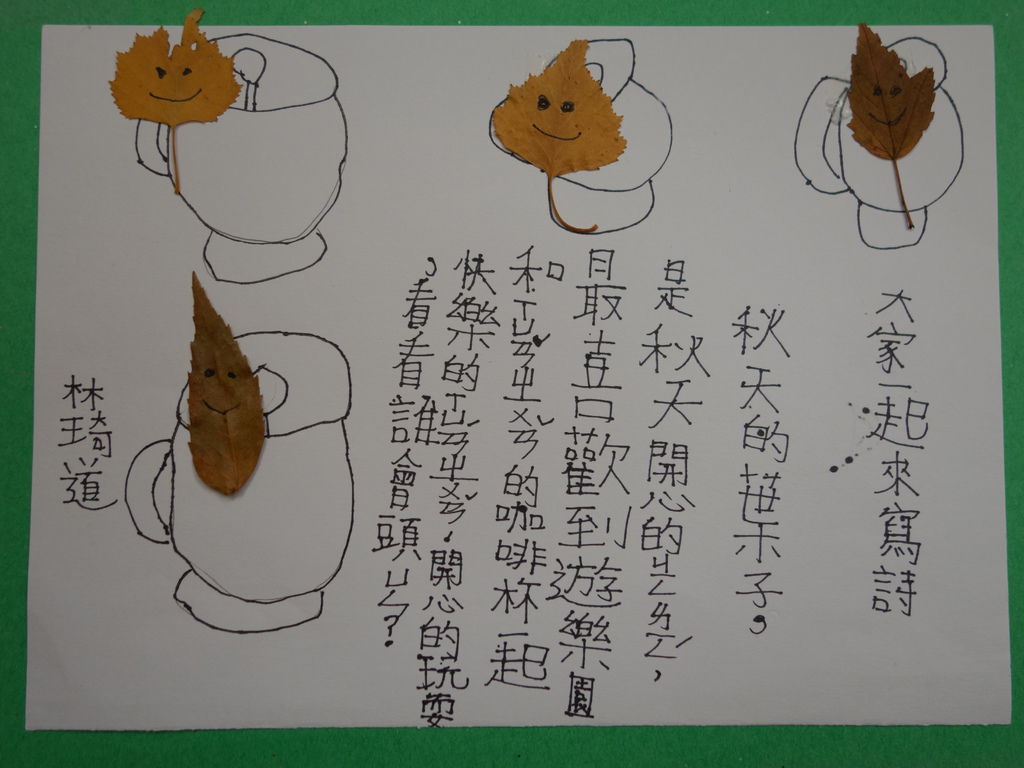 大家一起來寫詩
秋天的葉子。
是秋天開心的
最喜歡到遊樂園
和的咖啡杯一起
快樂的，開心的玩耍
，看看誰會頭ㄩㄣ？
林琦道